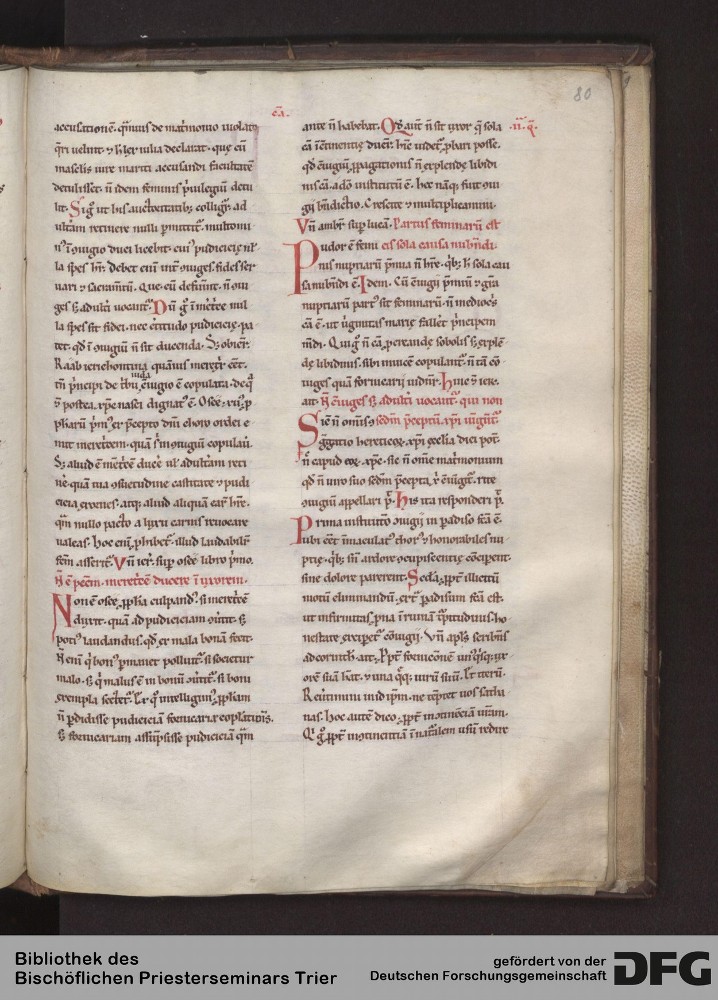 80
c̄a.
accusationē. q̄muis de mat̓monio uiolato
q̄ri uelint. ⁊ h̓ lex iulia declarat. que cū
masclis iure mariti accusandi facultatē
detulisset. n̄ idem feminis p̓uilegiū detu
lit. Sic̄ g̊ ut his auctoritatib; colligit̓. ad
ultām retinere nulli p̓mittit̓. multomi
la spes h̓r. debet enī int̓ ꝯiuges fides ser
uari ⁊ sacram̄tū. Que cū defuunt. n̄ ꝯiu
ges s; adulti uocant̓. Dū g̊ ī met̓ce nul
la spes sit fidei. nec c̓titudo pudicicię pa
tet. qd̓ ī ꝯiugiū n̄ sit ducenda. S; obicit̓.
Raab ierichontina quāuis meret̓x eēt.
tn̄ p̓ncipi de tbu iuda ꝯiugio ē copulata. de q̊
pharū p̓m̓ ex p̓cepto dn̄i choro ordei e
mit meret̓cem. quā s̓ in ꝯiugiū copulau̓.
S; aliud ē met̓cē ducē ul̓ adult̓am reti
nē. quā tua ꝯsuetudine castitatē ⁊ pudi
cicia exornes. atq; aliud aliquā car̄ h̓re.
q̄m nullo pacto a luxu carnis reuocare
ualeas. Hoc enī p̓hibet̓. illud laudabilit̓
fcm̄ asserit̓. Vn̄ ier̓. sup osee libro p̓mo.
N̄ ē pctm̄ meret̓cē ducere ī uxorem.
Non ē osee ꝓpha culpand̓. si meret̓cē
duxit. quā ad pudiciciam ꝯūtit. s;
poti̓ laudandus. qd̓ ex mala bonā fecit.
N̄ enī q̓ bon̓ p̓manet polluit̓ si societur
malo. s; q̓ malus ē in bonū ūtit̓. si boni
exempla sectet̓. Ex q̊ intelligim̓ ꝓpham
n̄ p̓didisse pudiciciā fornicariæ coplatiōis.
s; fornicariam assūpsisse pudiciciā q̄m
.ii. q̄.
ante n̄ habebat. Qd̓ aut̄ n̄ sit uxor q̄ sola
cā īcōtinentię ducit̓. h̄ic uidet̓ ꝓbari posse.
qd̓ ꝯiugiū ꝓpagationis n̄ explendę libidi
nis cā. a dō institutū ē. Hec naq; fuit ꝯiu
gii bn̄dictio. Crescite ⁊ multiplicamini.
Vn̄ ambr̓ sup lucā. Partus feminarū est
Pudor ē femi eis sola causa nubn̄di.
nis nuptiarū p̓mia n̄ h̓re. q̓b; h̓ sola cau
sa nubn̄di ē. Idem. Cū ꝯiugii p̓miū ⁊ gr̄a
nuptiarū part̓ sit feminarū. n̄ mediocs̓
cā ē. ut ū̓ginitas marię fallet p̓ncipem
mūdi. Qui g̊ n̄ cā ꝓcreandę sobolis s; explē
dę libidinis. sibi inuicē copulant̓. n̄ tā cō
iuges quā fornicarii uidnt̓. Hinc ⁊ ier̓.
ait. N̄ ꝯiuges s; adulti uocant̓. qui non
Sic n̄ omis ⁊ sedm̄ p̓ceptū xp̄i iūgūt̓.
ggatio hereticox. xp̄i ęcclia dici pot̄.
n̄ capud eox. xp̄c. sic n̄ om̄e matrimonium
qd̓ n̄ uiro suo sedm̄ p̓cepta xp̄i ꝯiūgit̓. rite
ꝯiugiū appellari p̄. His ita respōderi p̄.
Prima institutio ꝯiugii in paradiso fcā ē.
ubi eēt īmaculat̓ thor̓ ⁊ honorabiles nu
ptię. q̓b; sn̄ ardore ꝯcupiscentię ꝯcip̄ent.
sine dolore parerent. Scd̄a. ꝓpt̓ illicitū
motū eliminandū. ext̓ paradisum fcā est.
ut infirmitas. pna ī ruinā t̓pitudinis. ho
nestate excip̄et̓ ꝯiugii. Vn̄ apl̄s scribn̄s
ad corinth. ait. Ppt̓ fornicōnē un̓q̓sq; ux
orē suā h̄at. ⁊ una q̄q; uirū suū. Et iterū.
Reūtimini in id ip̄m. ne tēptet uos satha
nas. Hoc autē dico. ꝓpt̓ incōtinēciā ur̄am.
Q̓ g̊ ꝓpt̓ incōtinentiā ī nat̓alem usū redire
Bibliothek des
Bischöflichen Priesterseminars Trier
gefördert von der
Deutschen Forschungsgemeinschaft
DFG